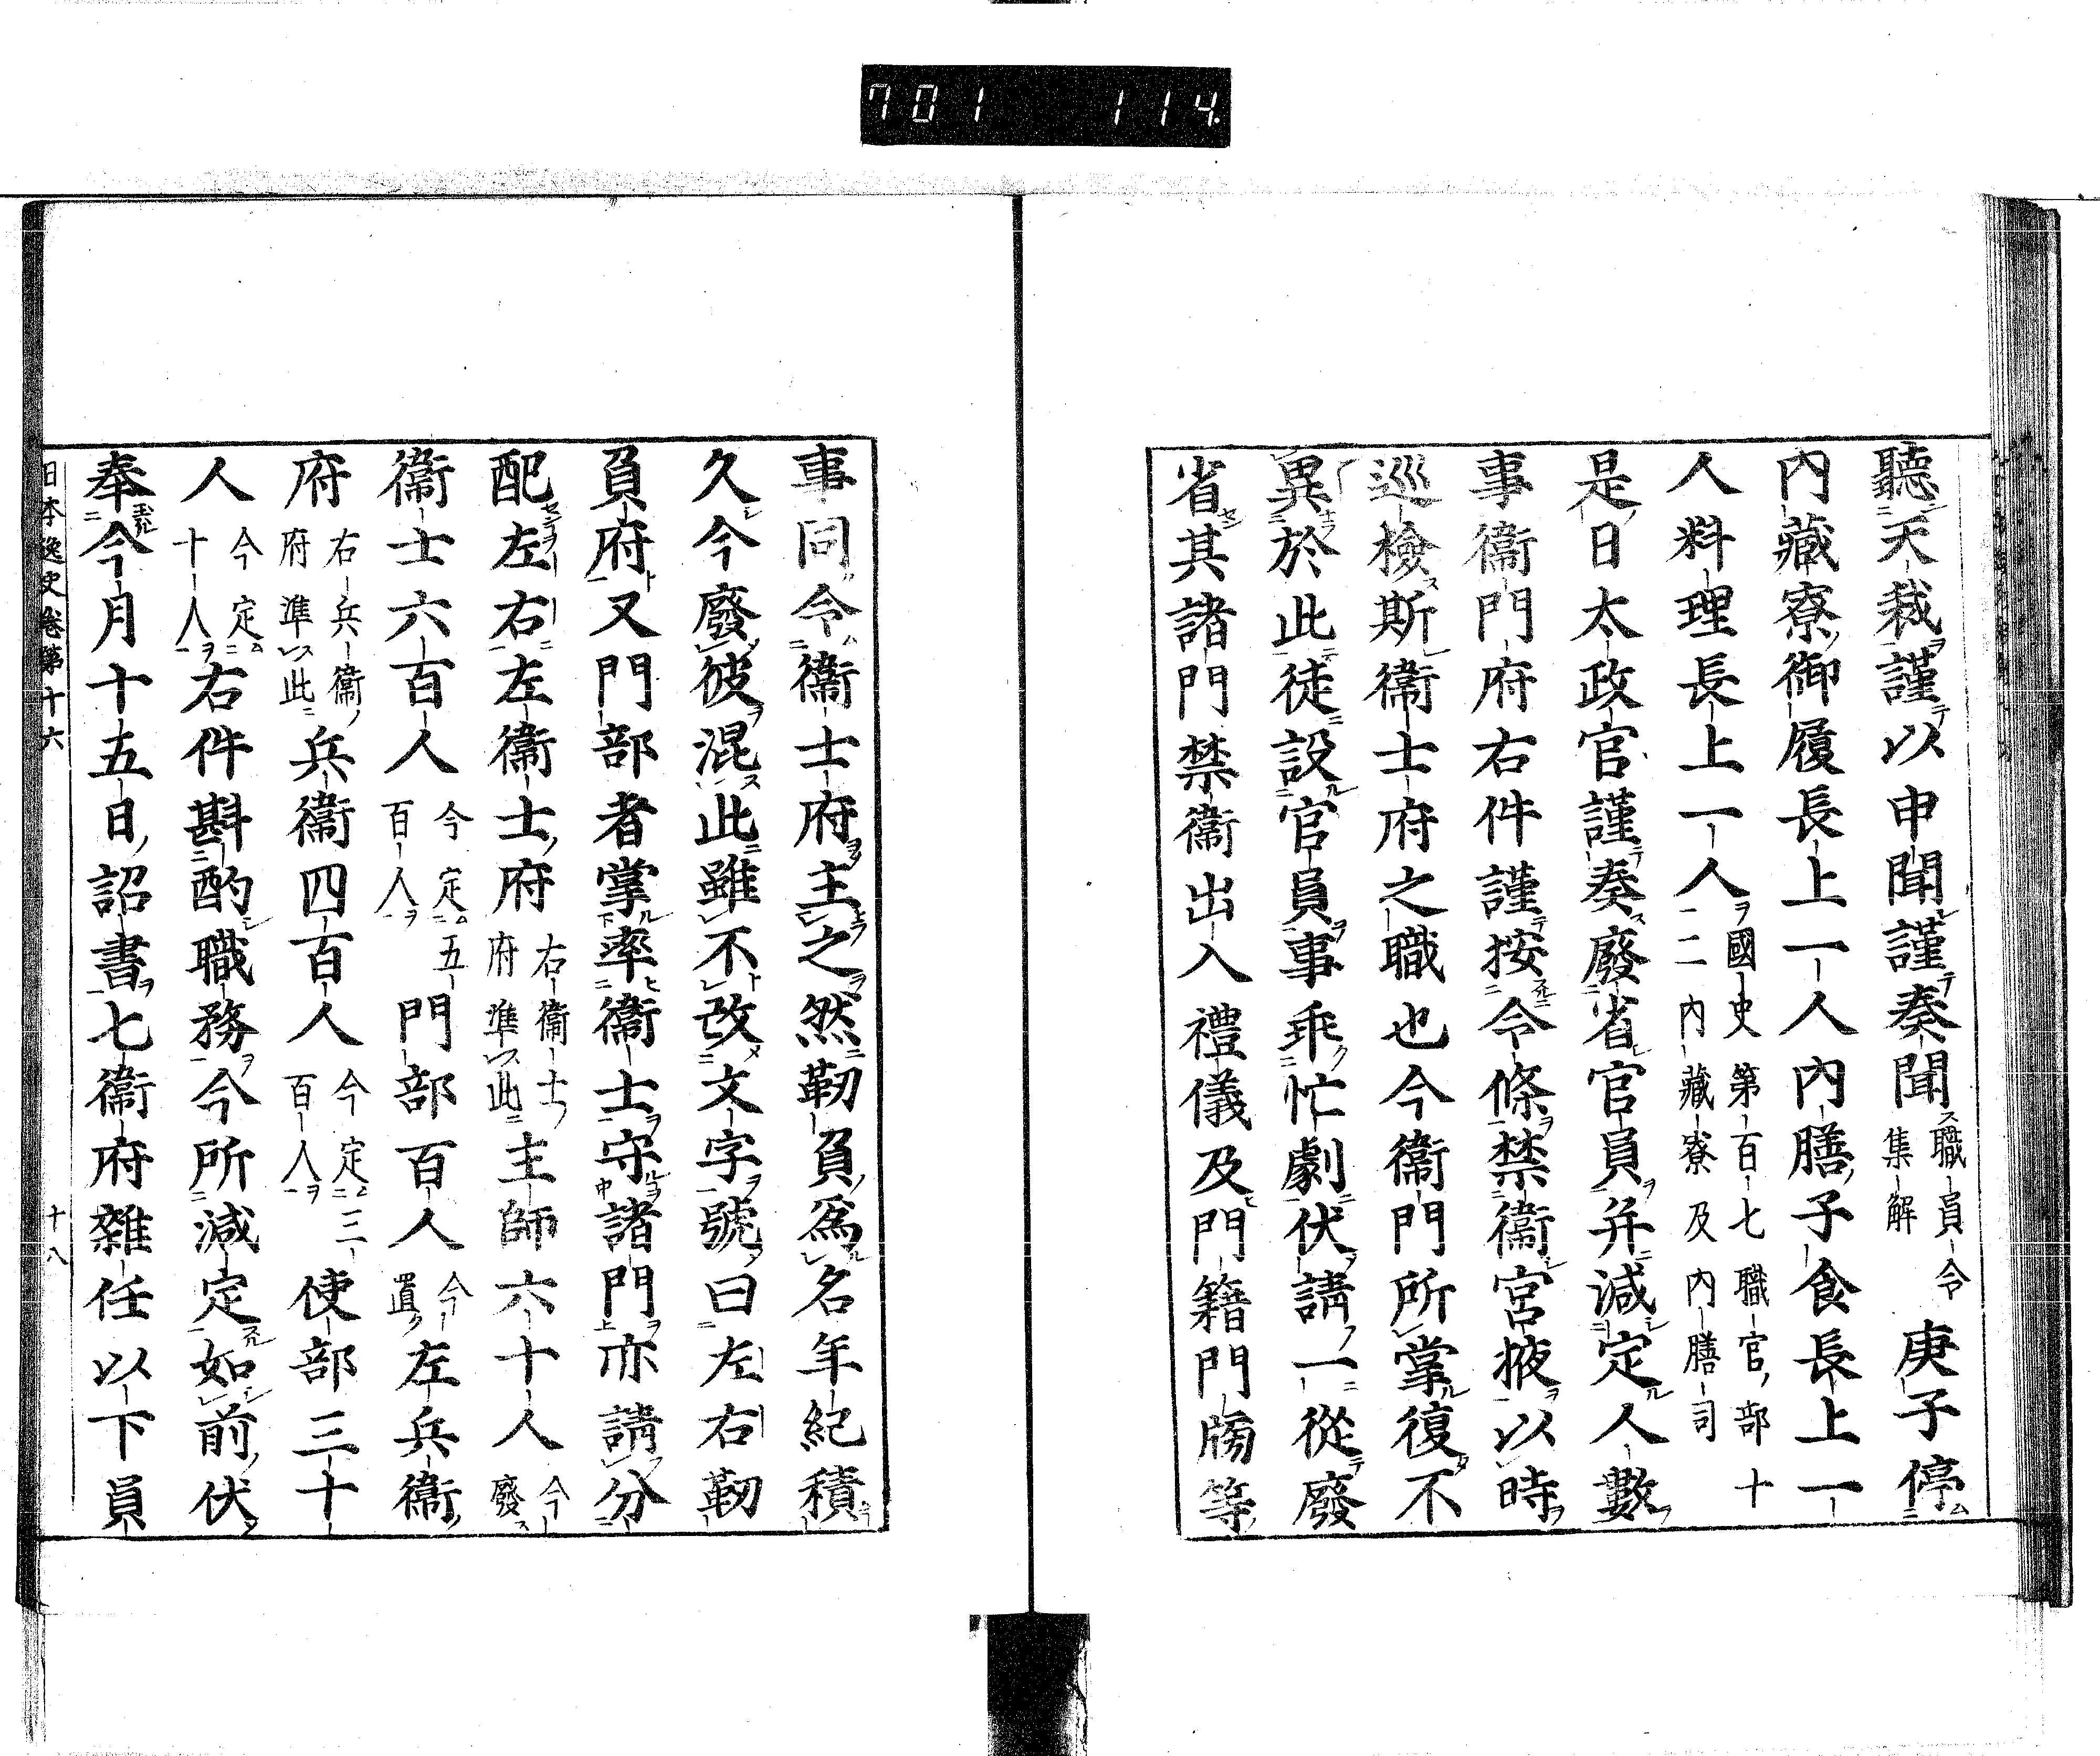 701 114
聽天裁謹以申聞謹奏聞職員令集解庚子停
內藏寮御履長上一人內膳子食長上一
人料理長上一人國史第百七職官部十二內藏寮及內膳司
是日太政官謹奏廢省官員并減定人數
事衞門府右件謹按令條禁衞宮掖以時
巡檢斯衞士府之職也今衞門所掌復不
異於此徒設官員事乖忙劇伏請一從廢
省其諸門禁衞出入禮儀及門籍門牓等
事同令衞士府主之然靭負爲名年紀積
久今廢彼混此雖不改文字號曰左右靭
負府又門部者掌率衞士守諸門亦請分
配左右左衞士府右衞士府準此主師六十人今廢
衞士六百人今定五百人門部百人今置左兵衞
府右兵衞府準此兵衞四百人今定三百人使部三十
人今定二十人右件斟酌職務今所減定如前伏
奉今月十五日詔書七衞府雜任以下員
日本逸史卷第十六 十八